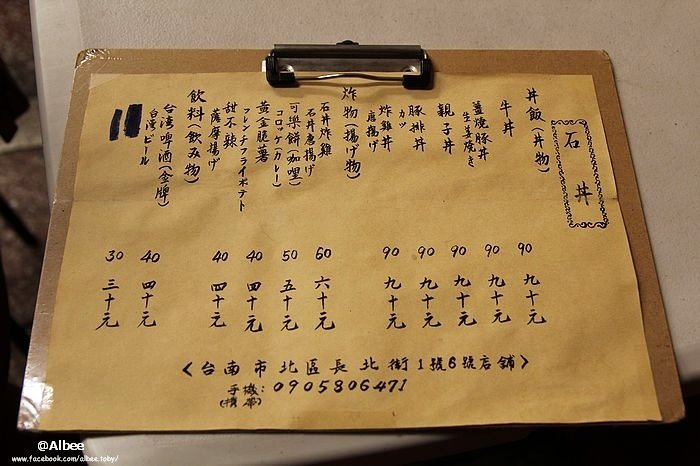 石丼
丼飯(丼物)
牛丼
90
九十元
薑燒豚丼
生姜焼き
90
九十元
親子丼
90
九十元
豚排丼
カツ
90
九十元
炸雞丼
唐揚げ
90
九十元
炸物(揚げ物)
石丼炸雞
石丼唐揚げ
60
六十元
可樂餅(咖哩)
コロッケ(カレー)
50
五十元
黃金脆薯
フレンチフライポテト
40
四十元
甜不辣
薩摩揚げ
40
四十元
飲料(飲み物)
台湾啤酒(金牌)
台湾ビール
40
四十元
30
三十元
<台南市北區長北街1號6號店舖>
手機:0905806471
(携帯)
@Albee
www.facebook.com/albee.toby/